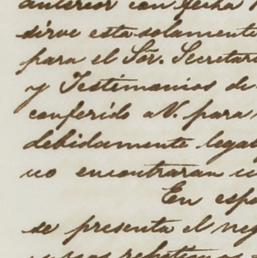 anterior con fecha
sirve esta solamente
para el Sor. Secretari
y Testimonios de
conferido a V. para
debidamente legal
no encontraran
En esp
se presenta el neg